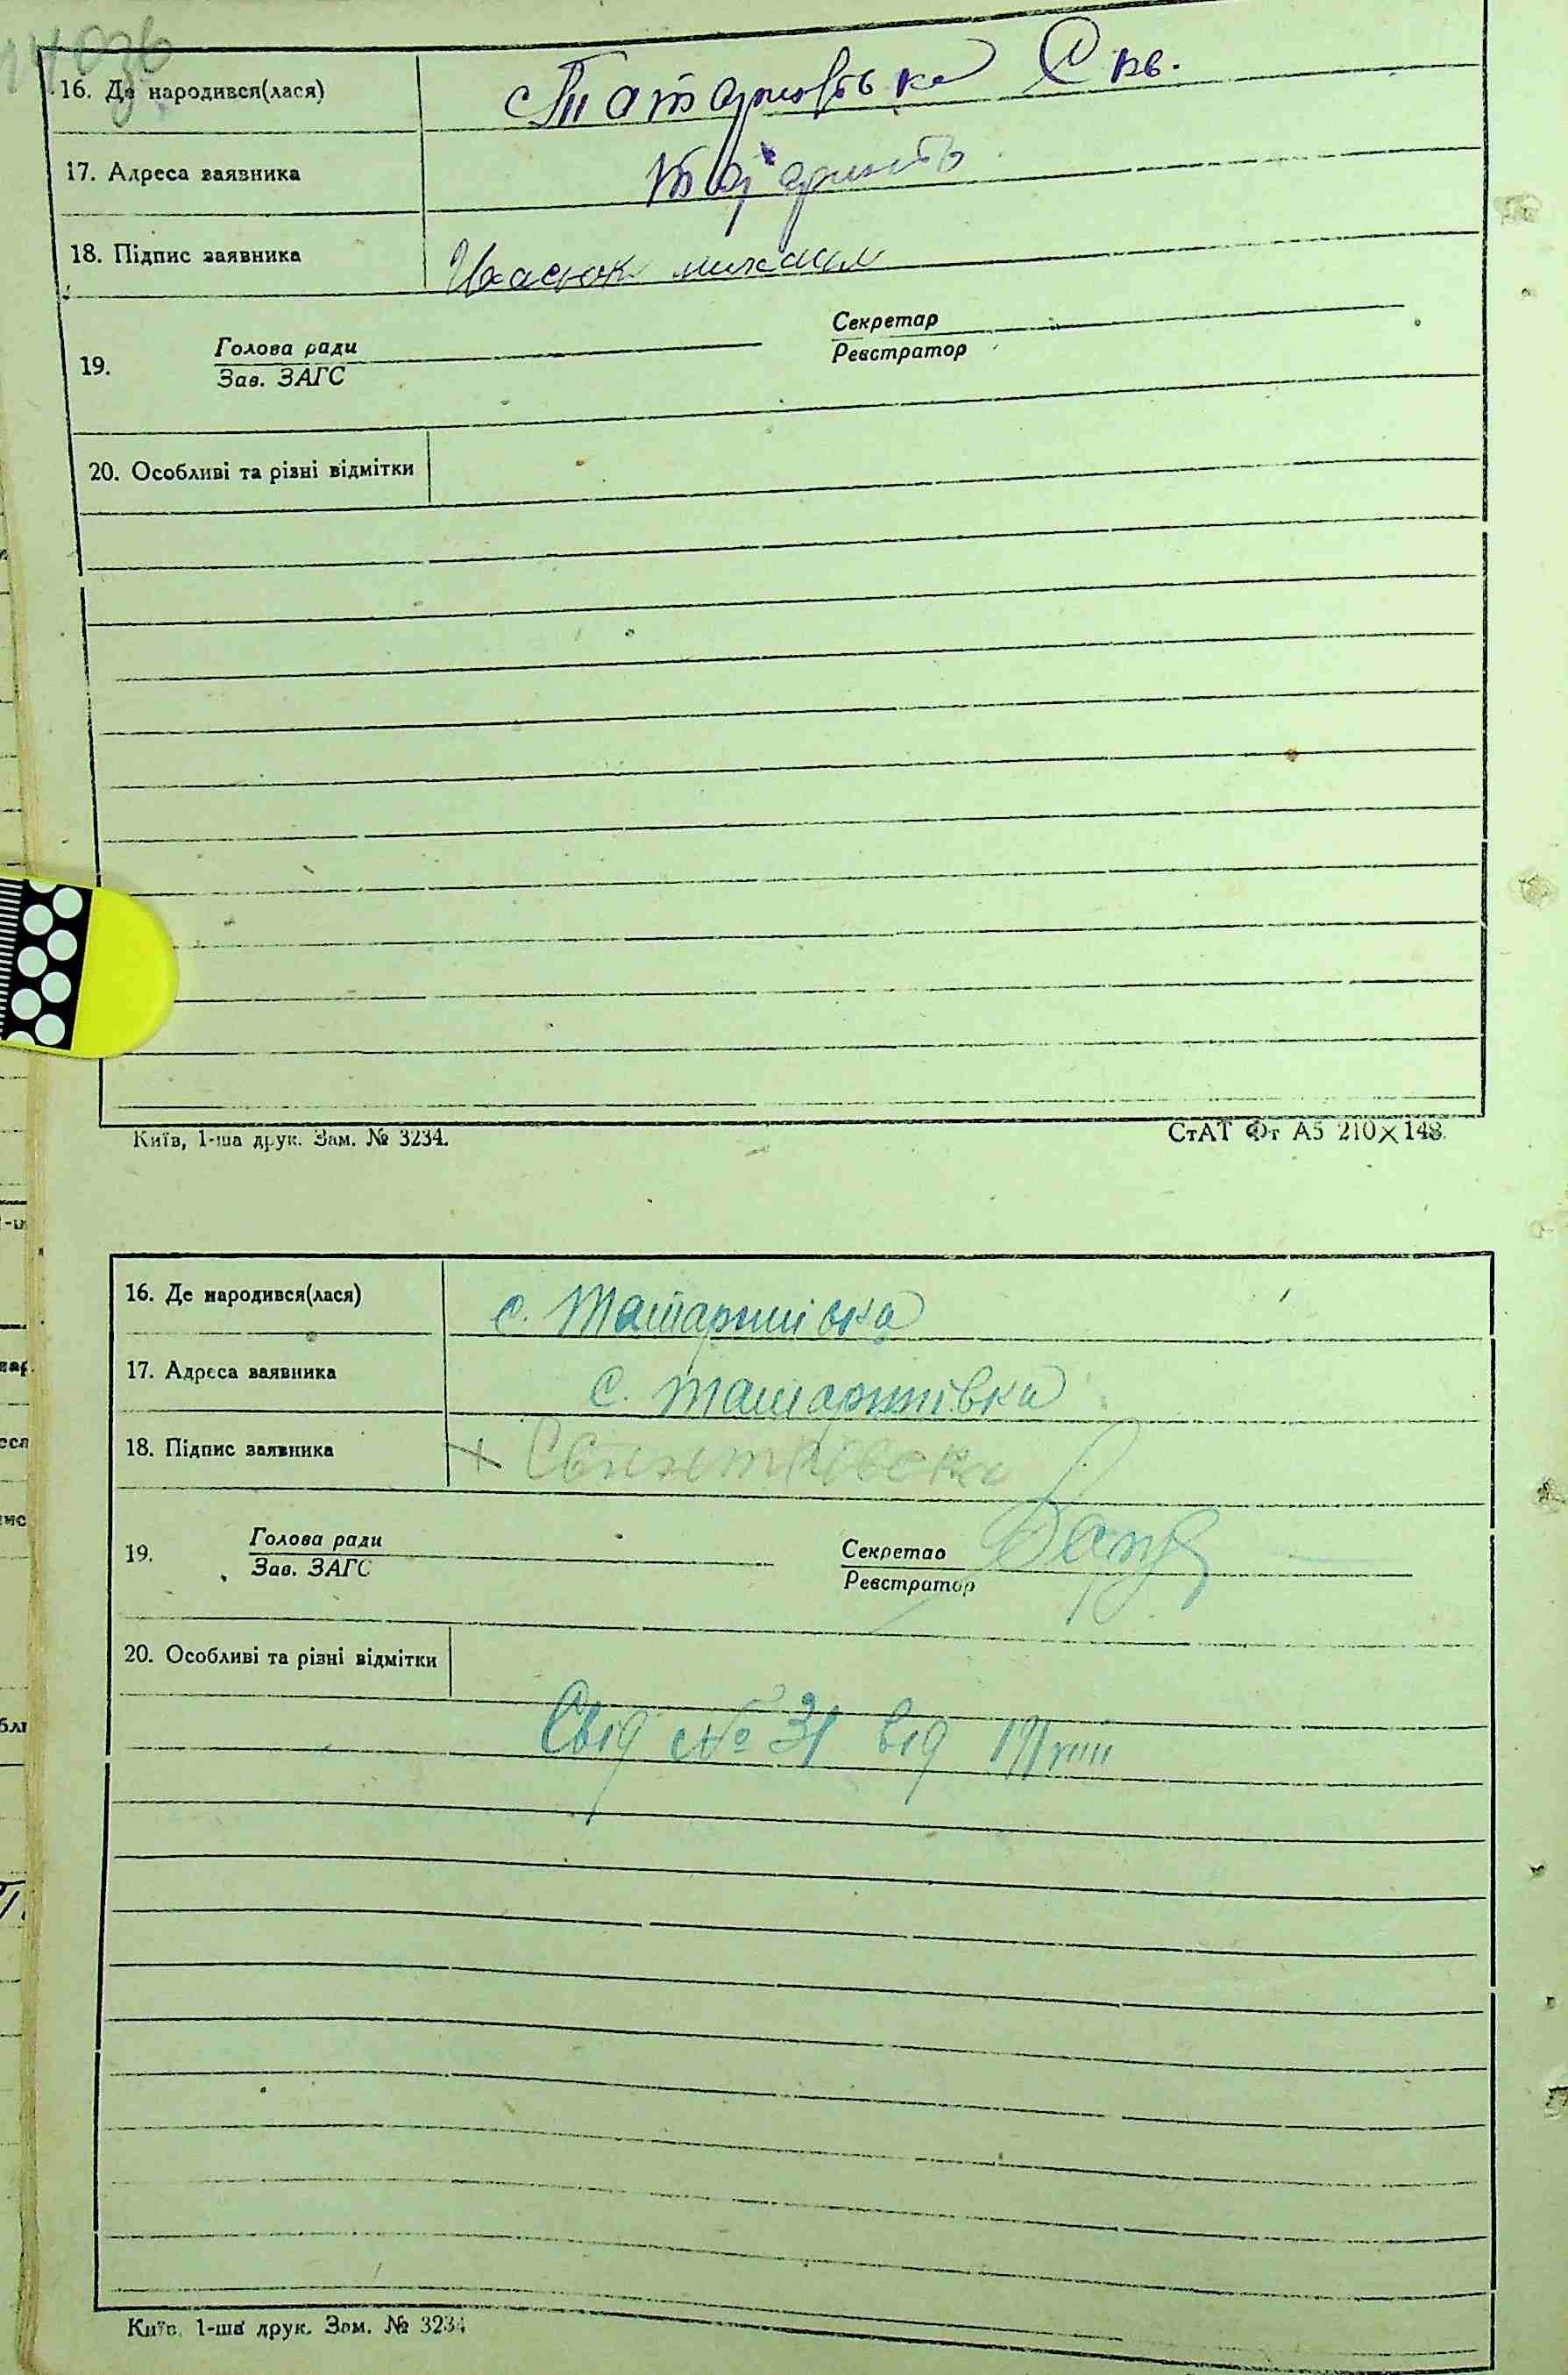 14036
16. Де народився(лася) Татарновка Скв.
17. Адреса заявника
18. Підпис заявника
Голова ради Секретар
19.
Зав. ЗАГС Реєстратор
20. Особливі та різні відмітки
Київ, 1-ша друк. Зам. № 3234. СтАТ Фт А5 210×148
16. Де народився(лася) с. Татарнівка
17. Адреса заявника с. Татарнівка
18. Підпис заявника +
Голова ради Секретар
19.
Зав. ЗАГС Реєстратор
20. Особливі та різні відмітки
Свід № 31 від 19/VIII
Київ, 1-ша друк. Зам. № 3234